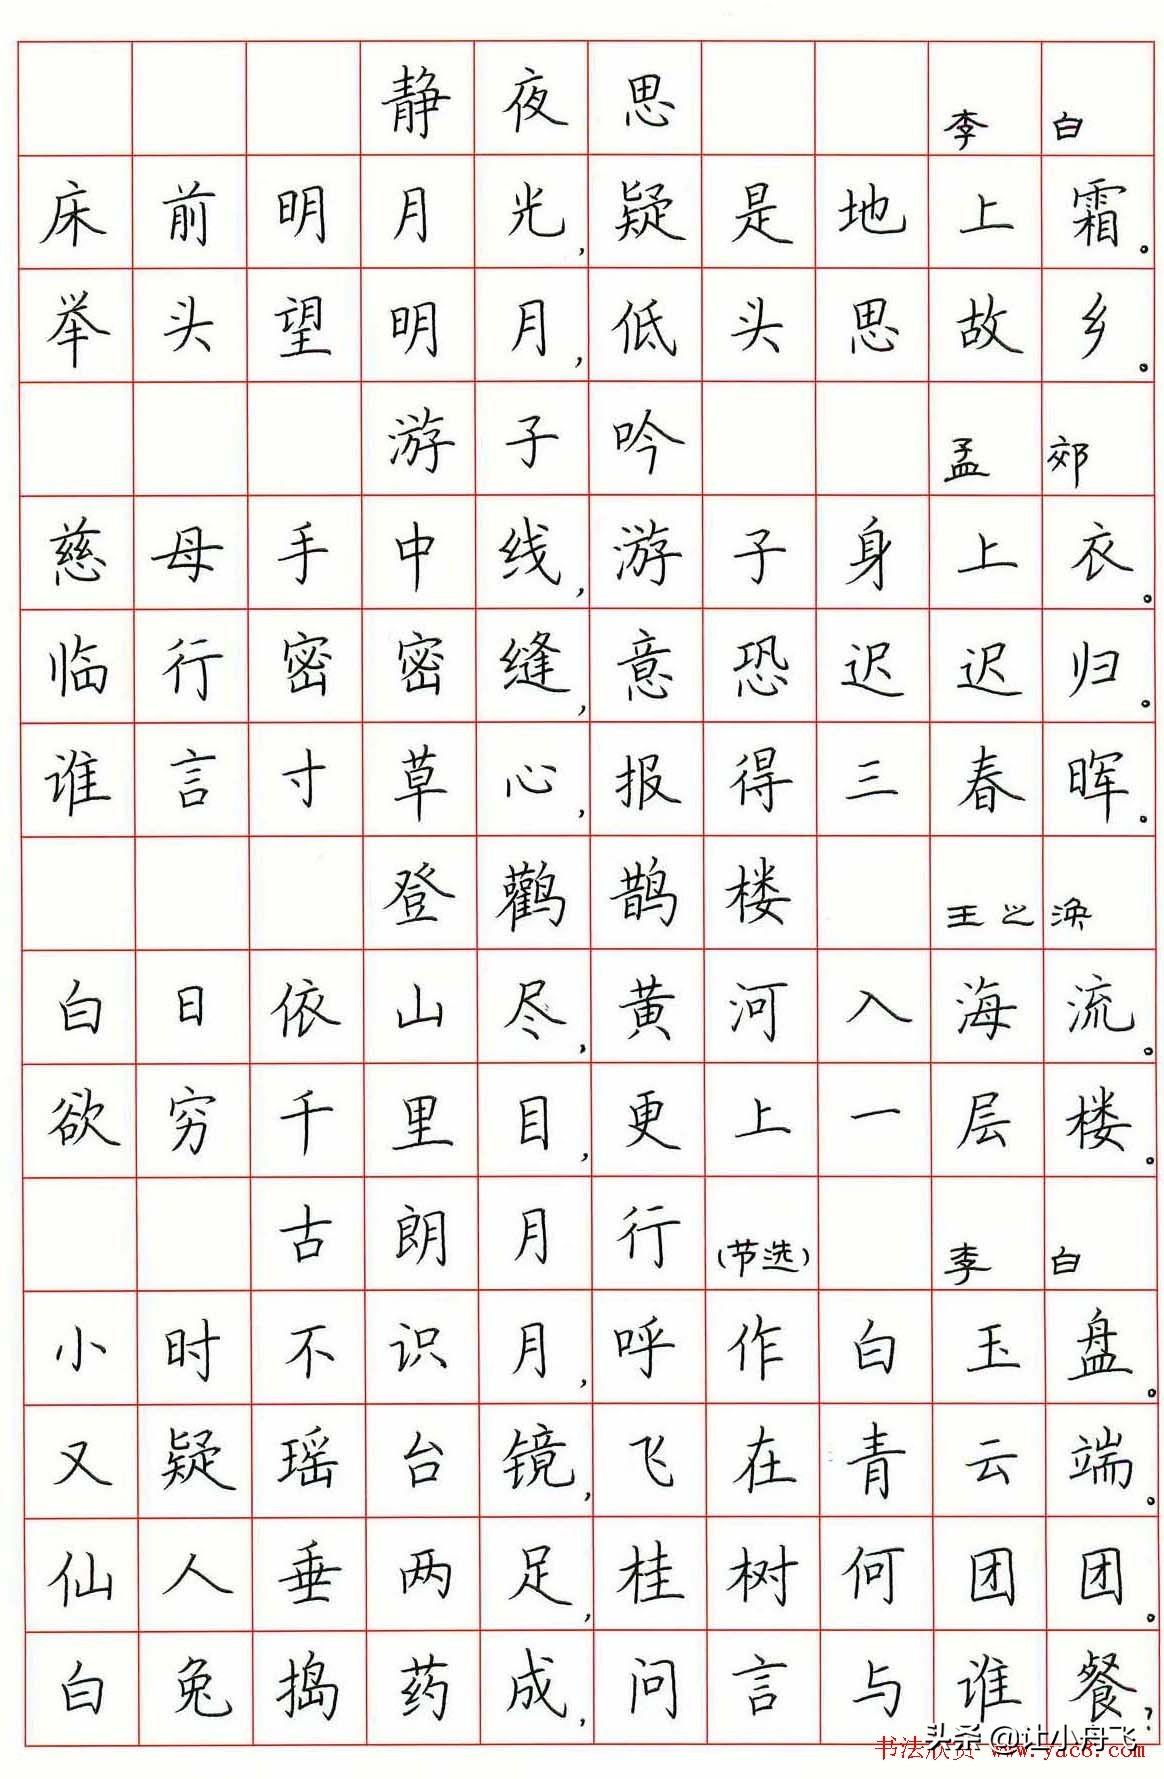 静夜思 李白
床前明月光,疑是地上霜。
举头望明月,低头思故乡。
游子吟 孟郊
慈母手中线,游子身上衣。
临行密密缝,意恐迟迟归。
谁言寸草心,报得三春晖。
登鹳鹊楼 王之涣
白日依山尽,黄河入海流。
欲穷千里目,更上一层楼。
古朗月行(节选) 李白
小时不识月,呼作白玉盘。
又疑瑶台镜,飞在青云端。
仙人垂两足,桂树何团团。
白兔捣药成,问言与谁餐?
头条 @让小舟飞
书法欣赏 www.yac8.com